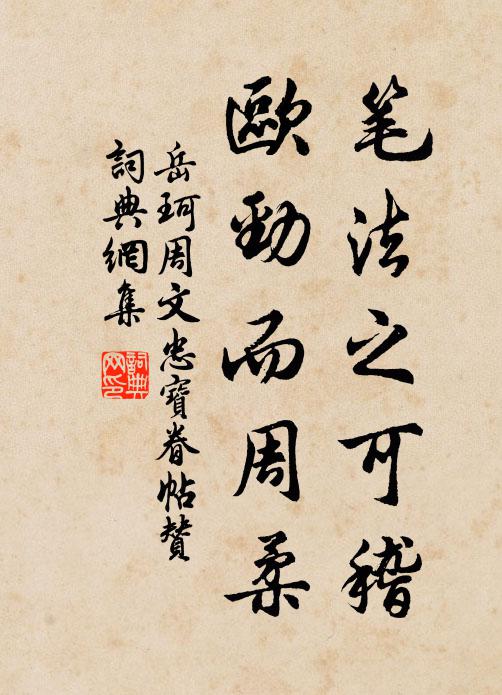 笔法之可稽
歐勁而周柔
岳珂周文忠寶眷帖贊
詞典網集
詞典
网印